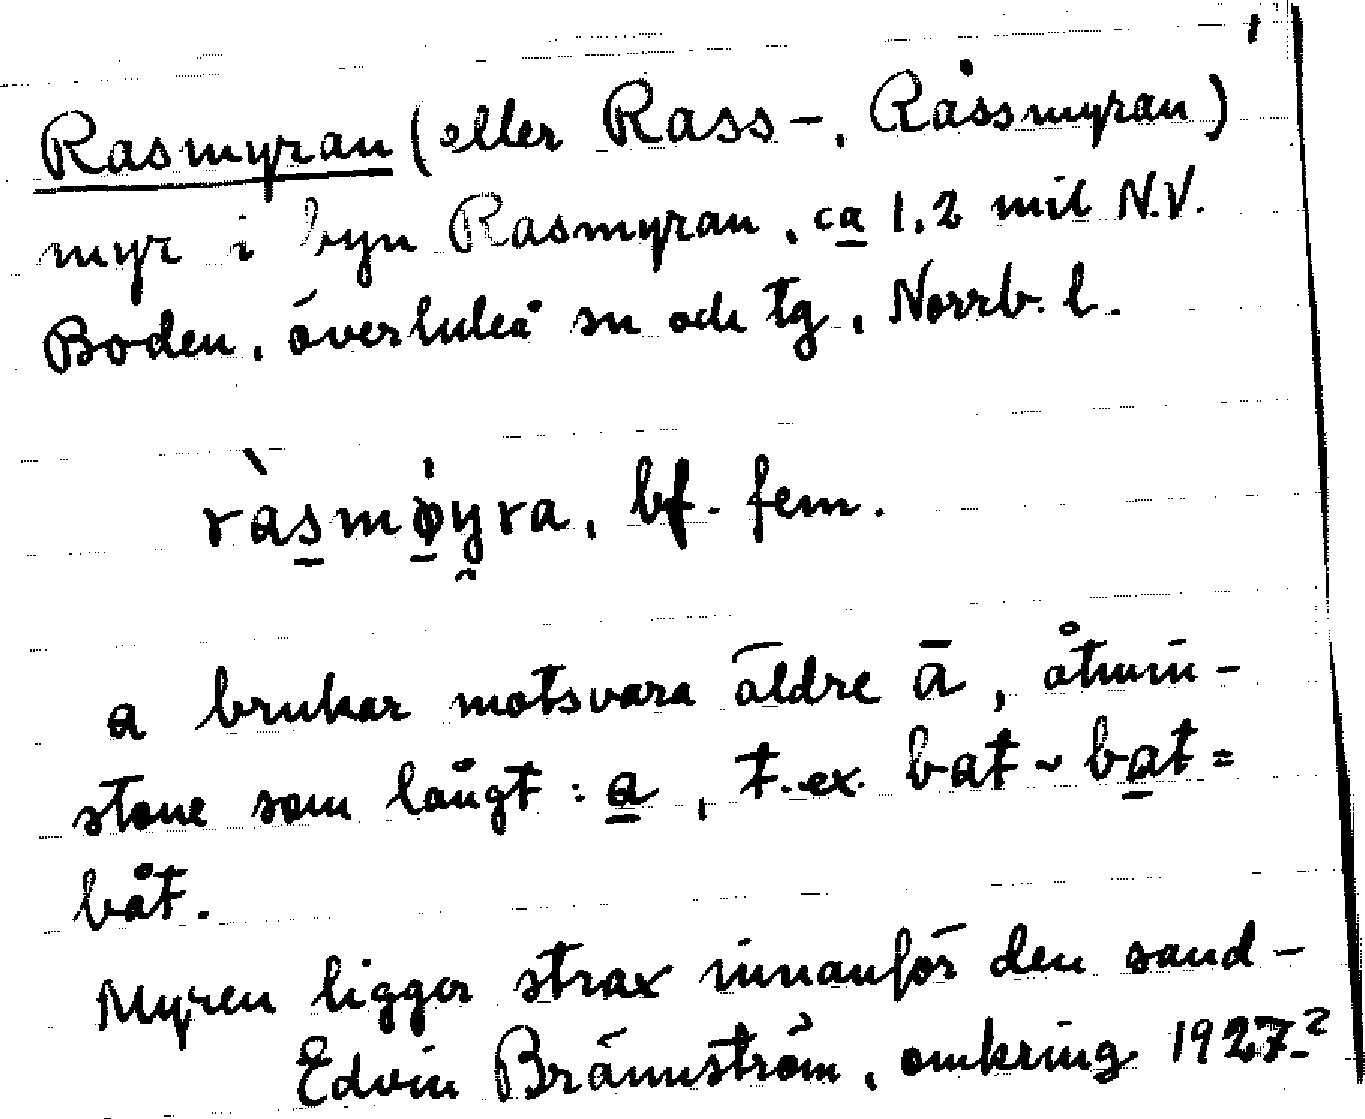 Rasmyran (eller Rass-, Råssmyran)
myr i byn Rasmyran, ca 1,2 mil N.V.
Boden, överluleå sn och tg, Norrb. l.
ràs̲mø̲y̯ra, bf. fem.
a brukar motsvara äldre ā, åtmin-
stone som långt: a̲, t.ex. bat ~ ba̲t =
båt.
Myren ligger strax innanför den sand-
Edvin Brännström, omkring 1927-?